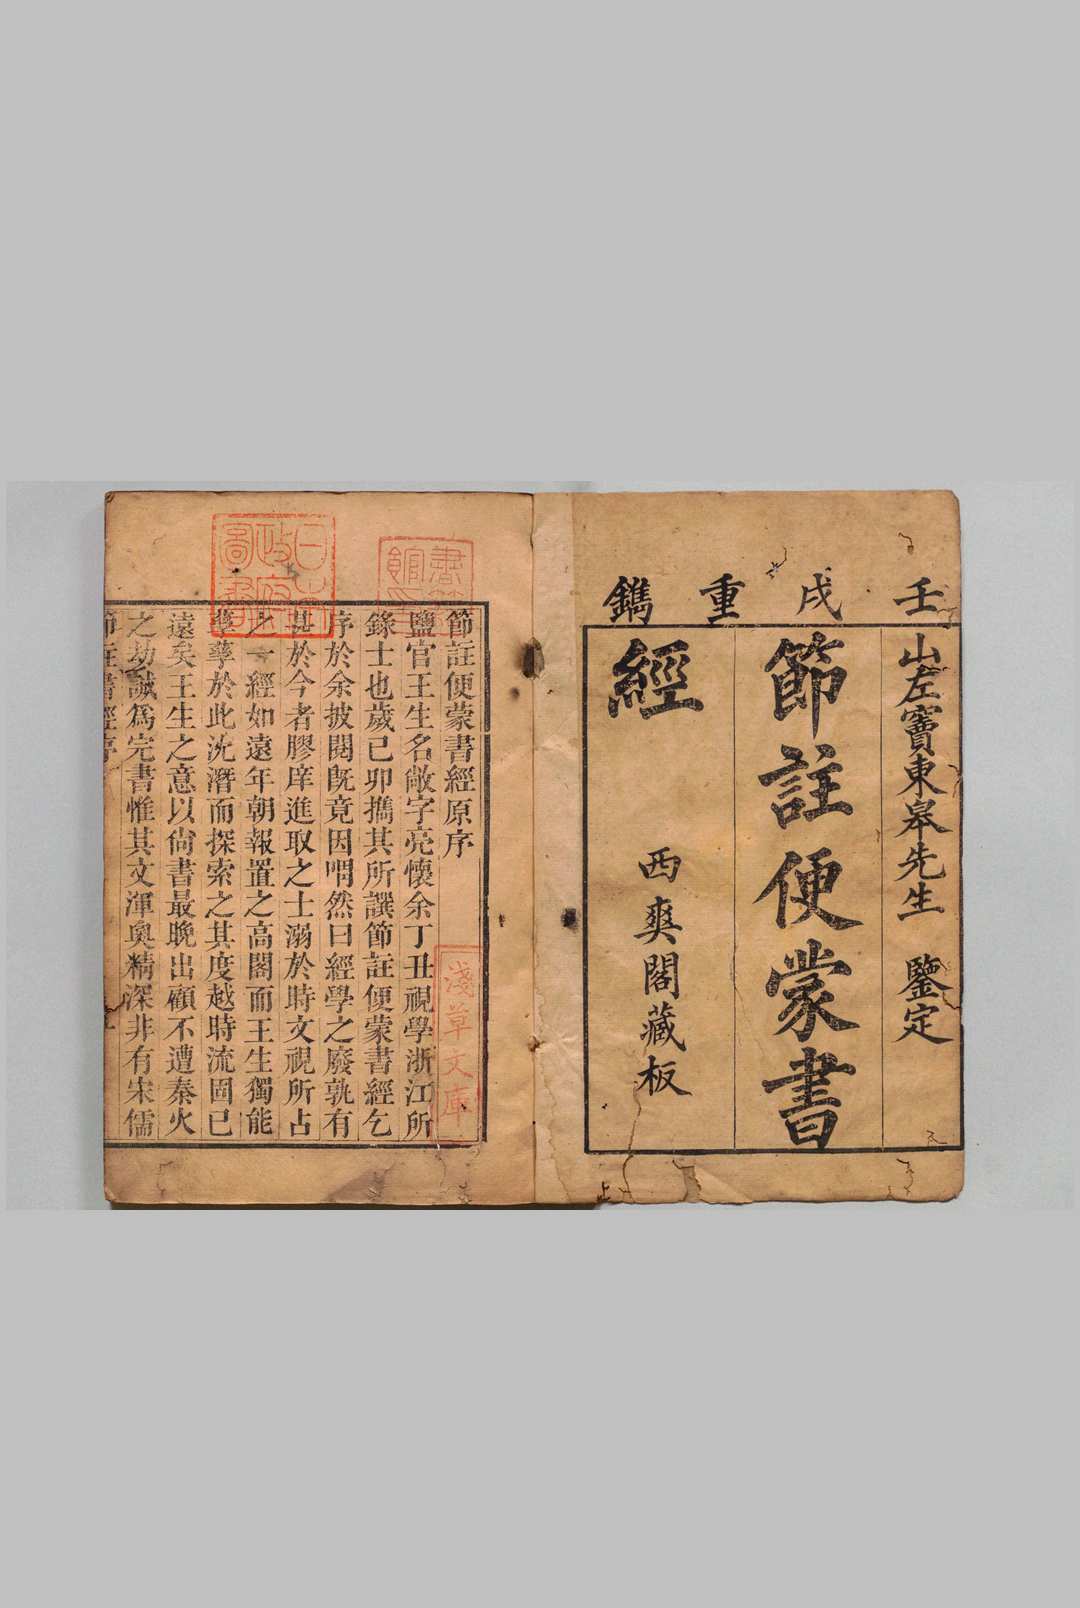 壬戌重鐫
山左竇東皋先生 鑒定
節註便蒙書
經
西爽閣藏板
節註便蒙書經原序
鹽官王生名敞字亮懷余丁丑視學浙江所
錄士也歲已卯攜其所譔節註便蒙書經乞
序於余披閱旣竟因喟然曰經學之廢孰有
甚於今者膠庠進取之士溺於時文視所占
之一經如遠年朝報置之高閣而王生獨能
孳孳於此沈潛而探索之其度越時流固已
遠矣王生之意以尙書最晚出顧不遭秦火
之劫誠爲完書惟其文渾奧精深非有宋儒
節註書經序
淺草文庫
日本政府圖書